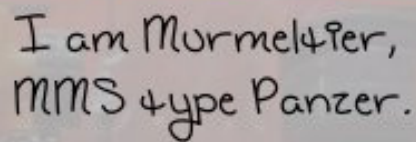 I am Murmeltier,
MMS type Panzer.